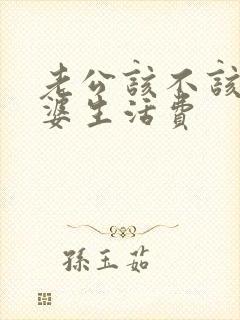 老公該不該
婆生活費
孫玉茹